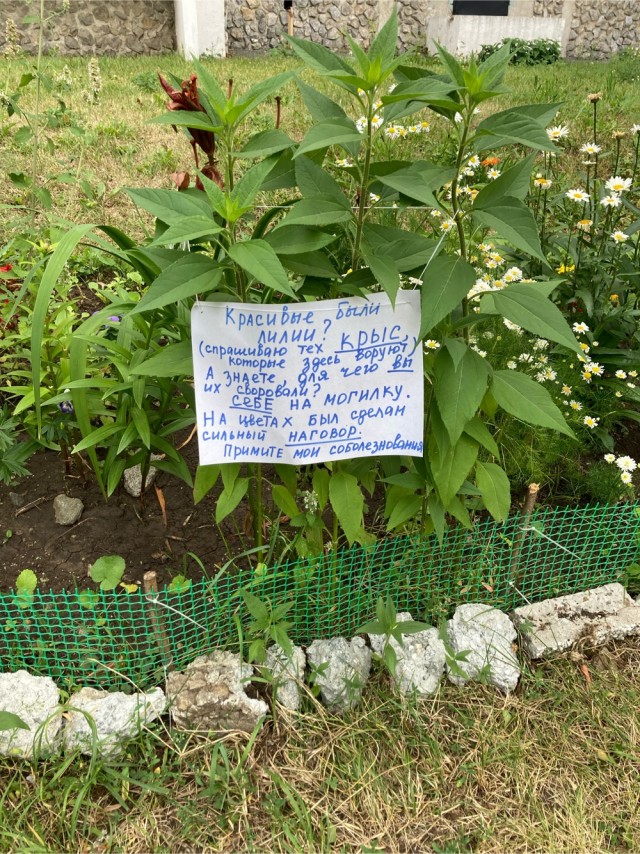 Красивые были
лилии?
(спрашиваю тех КРЫС,
которые здесь воруют)
А знаете, для чего вы
их своровали?
СЕБЕ на могилку.
На цветах был сделан
сильный наговор.
Примите мои соболезнования